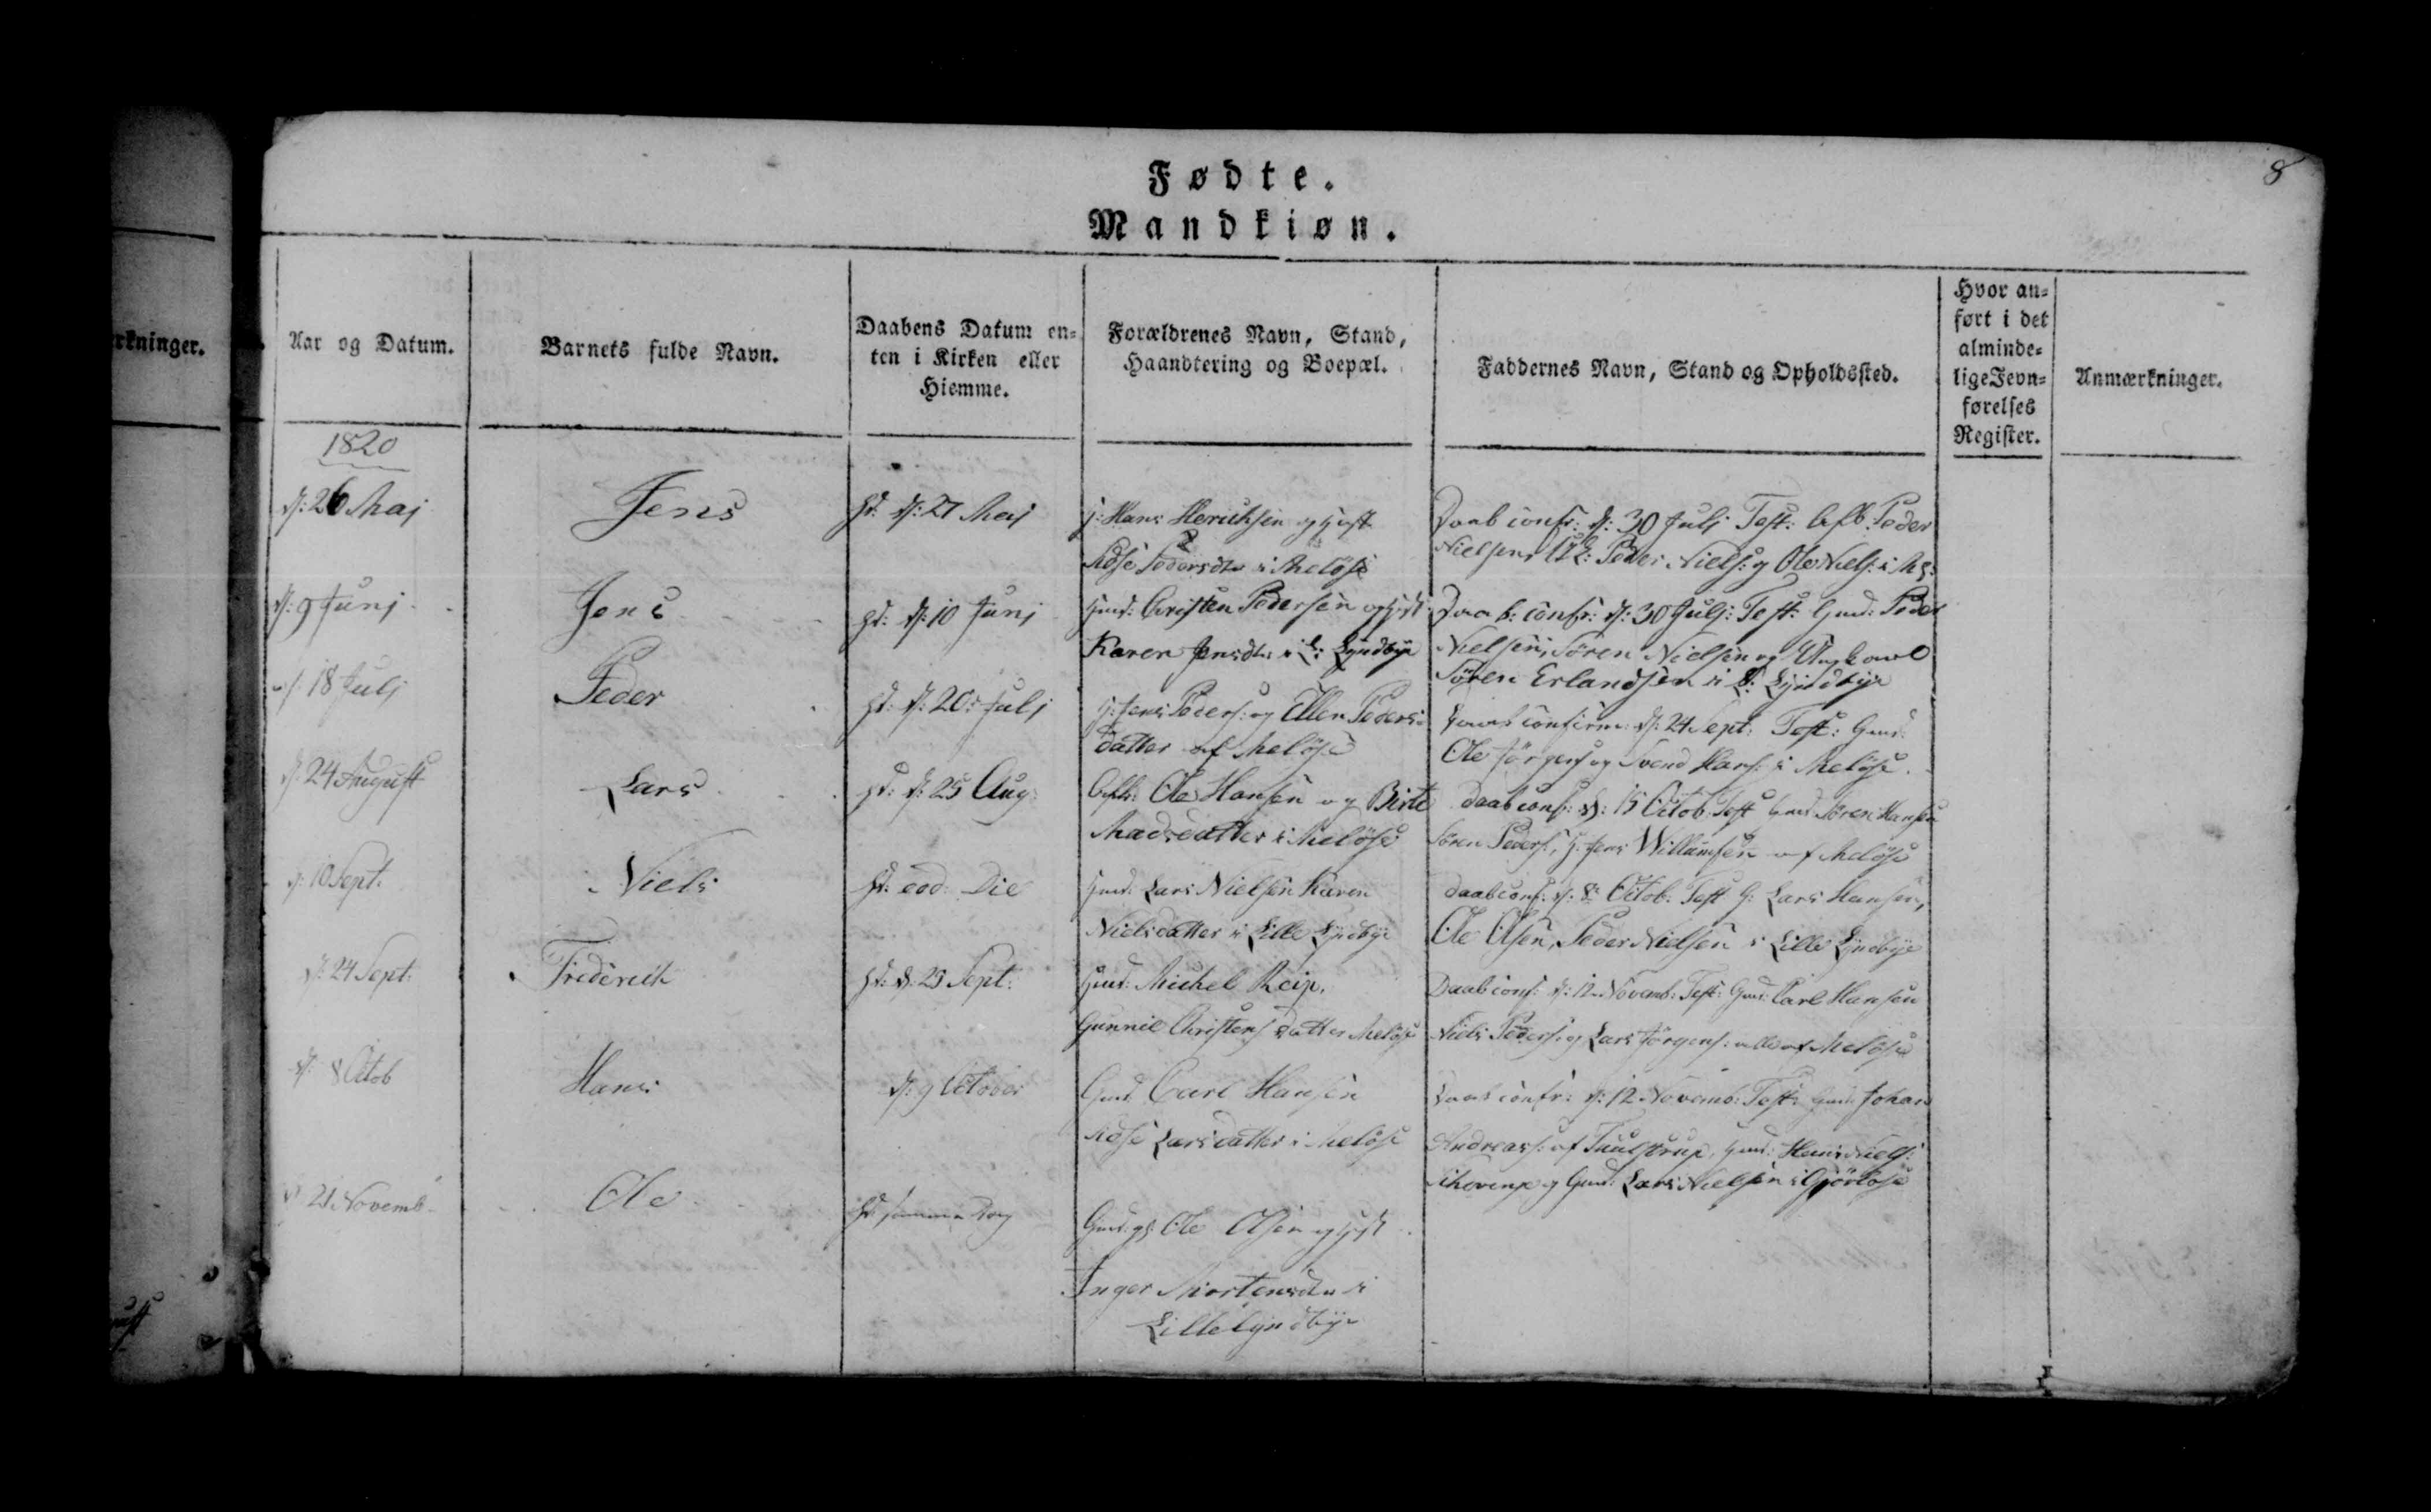 8
Fødte.
Mandkiøn.
rkninger.
Aar og Datum.
Barnets fulde Navn.
Daabens Datum en-
ten i Kirken eller
Hiemme.
Forældrenes Navn, Stand,
Haandtering og Boepæl.
Faddernes Navn, Stand og Opholdssted.
Hvor an-
ført i det
alminde-
lige Jevn-
førelses
Register.
Anmærkninger.
1820
d: 26 Maj
Jens
hd: d: 27 Maj
Hans Henriksen og Hust
Pedersdtr i Meløse
Daab confr: d: 30 Julj Test: Peder
Nielsen, Peder Niels: og Ole Niels: i
d: 9 Junj
Jens
hd: d: 10 Junj
Hmd: Christen Pedersen og Hust
Karen Jensdtr i L: Lyndbye
Daab: confr: d: 30 Julj: Test: Gmd: Peder
Nielsen, Sören Nielsen og Ungkarl
Sören Erlandsen i L: Lyndbye
d: 18 Julj
Peder
hd: d: 20 Julj
Jens Peders: og Ellen Peders-
datter af Meløse
Daab confirm: d: 24 Sept: Test: Gmd:
Ole Jörgens og Svend Hans: i Meløse
d: 24 August
Lars
hd: d: 25 Aug:
Ole Hansen og Birte
Madsdatter i Meløse
daab conf: d: 15 Octob: Test Sören Hansen
Sören Peders:, Jens Willumsen af Meløse
d: 10 Sept.
Niels
hd: eod: Die
Hmd: Lars Nielsen Karen
Nielsdatter i Lille Lyndbye
daab conf: d: 8 Octob: Test G: Lars Hansen,
Ole Olsen, Peder Nielsen i Lille Lyndbye
d: 24 Sept:
Frederich
hd: d: 25 Sept:
Hmd: Michel
Gunnil Christensdatter Meløse
Daab conf: d: 12 Novemb: Test: Gmd: Carl Hansen
Niels Peders: og Lars Jörgens: alle af Meløse
d: 8 Octob
Hans
d: 9 October
Gmd Carl Hansen
Larsdatter i Meløse
Daab confr: d: 12 Novemb: Test: Gmd: Johan
Andreas: af Huulstrup
og Gmd: Lars Nielsen i Gjørløse
d: 21 Novemb
Ole
hd: samme Dag
Ole Olsen og Hust
Inger Mortensdtr i
Lille Lyndbye